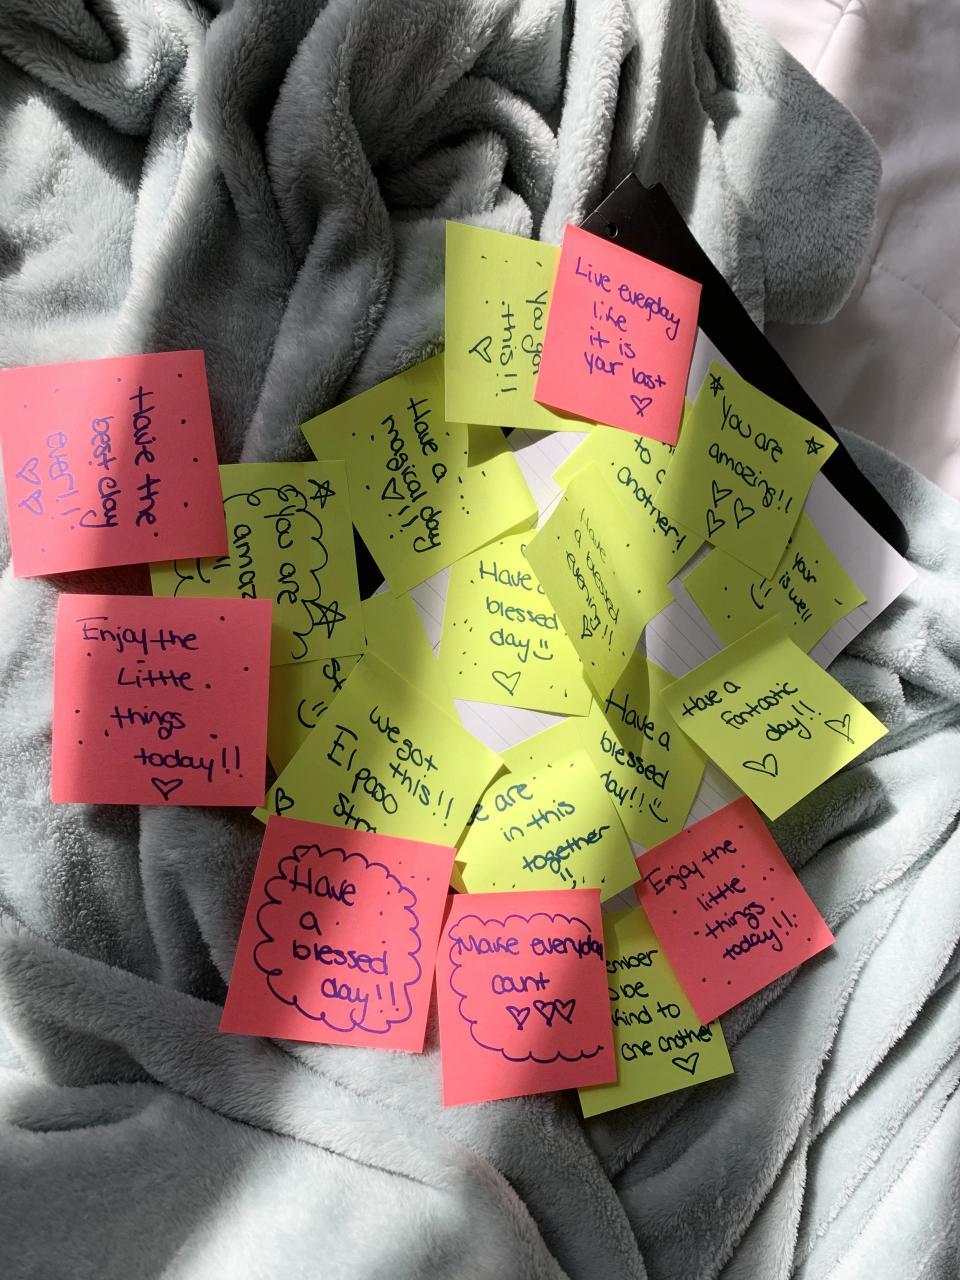 you got
this!!
Live everyday
like
it is
your last
Have a
magical day
!!!
You are
amazing!!
to
another!
Have the
best day
ever!!
you are
Have a
blessed
day
Have
a blessed
evening!!
your
is well
Enjoy the
Little
things
today!!
Have a
fantastic
day!!
we got
this!!
El paso
Have a
blessed
day!!
are
in this
together
Enjoy the
little
things
today!!
Have
a
blessed
day!!
Make everyday
count
be
kind to
one another